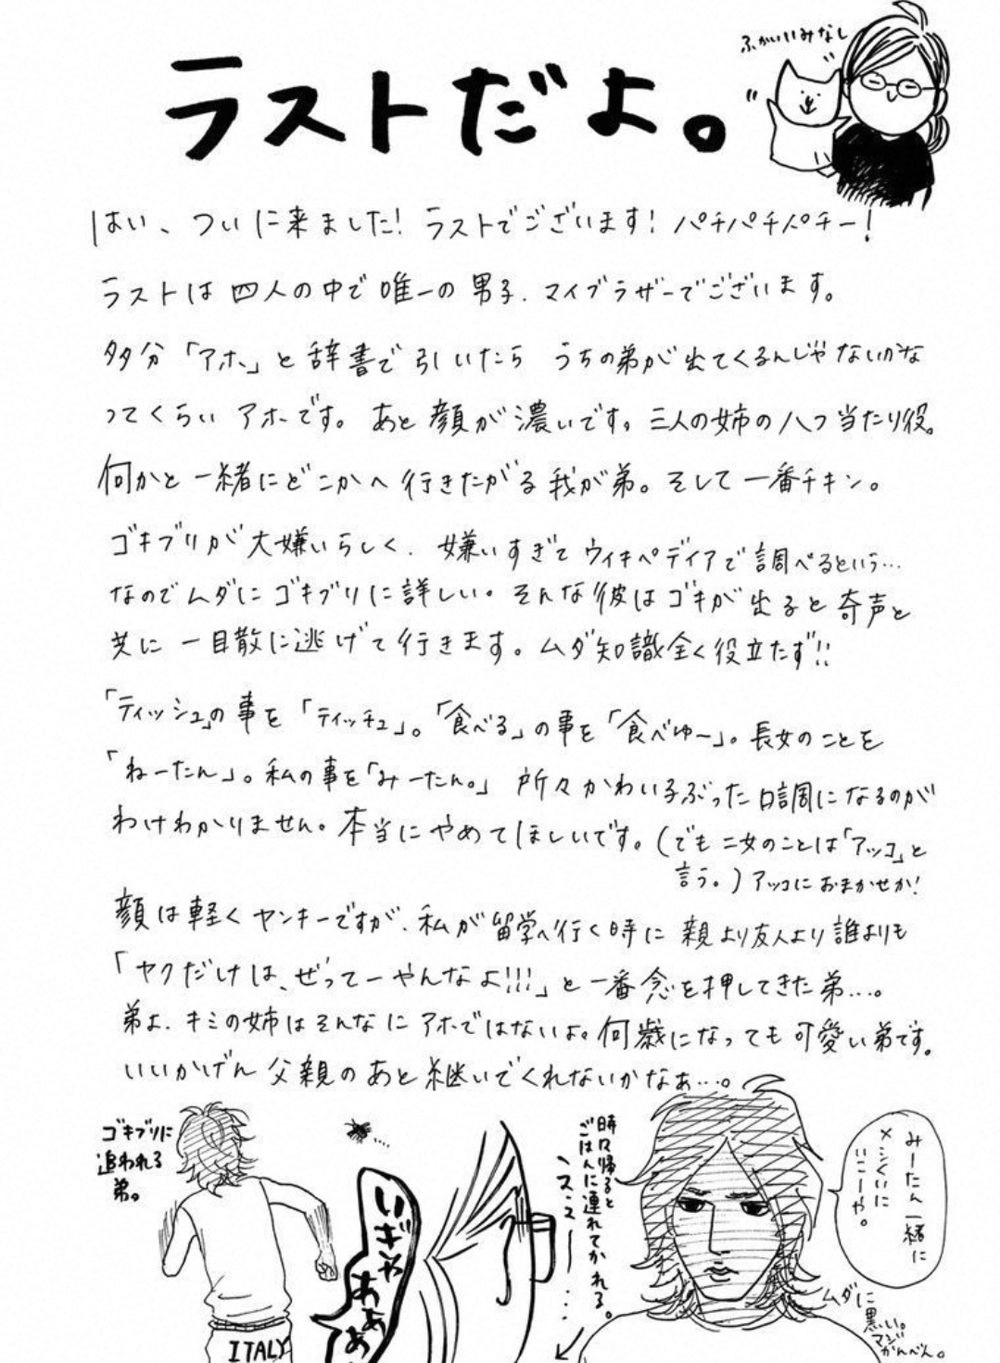 ラストだよ。
ふかいいみなし
はい、ついに来ました!ラストでございます!パチパチパチー!
ラストは四人の中で唯一の男子、マイブラザーでございます。
多分「アホ」と辞書で引いたら うちの弟が出てくるんじゃないかな
ってくらい アホです。あと顔が濃いです。三人の姉の八つ当たり役。
何かと一緒にどこかへ行きたがる我が弟。そして一番チキン。
ゴキブリが大嫌いらしく、嫌いすぎてウィキペディアで調べるという…
なのでムダにゴキブリに詳しい。そんな彼はゴキが出ると奇声と
共に一目散に逃げて行きます。ムダ知識全く役立たず!!
「ティッシュ」の事を「ティッチュ」。「食べる」の事を「食べゆ〜」。長女のことを
「ねーたん」。私の事を「みーたん。」所々かわい子ぶった口調になるのが
わけわかりません。本当にやめてほしいです。(でも二女のことは「アッコ」と
言う。)アッコにおまかせか!
顔は軽くヤンキーですが、私が留学へ行く時に親より友人より誰よりも
「ヤクだけは、ぜってーやんなよ!!!」と一番念を押してきた弟…。
弟よ、キミの姉はそんなにアホではないよ。何歳になっても可愛い弟です。
いいかげん父親のあと継いでくれないかなぁ…。
ゴキブリに
追われる
弟。
いぎゃ
あぁあ
ITALY
時々帰ると
ごはんに連れてかれる。
みーたん一緒に
メシくいに
いこーや。
ムダに
黒い。
マジ
かんべん。